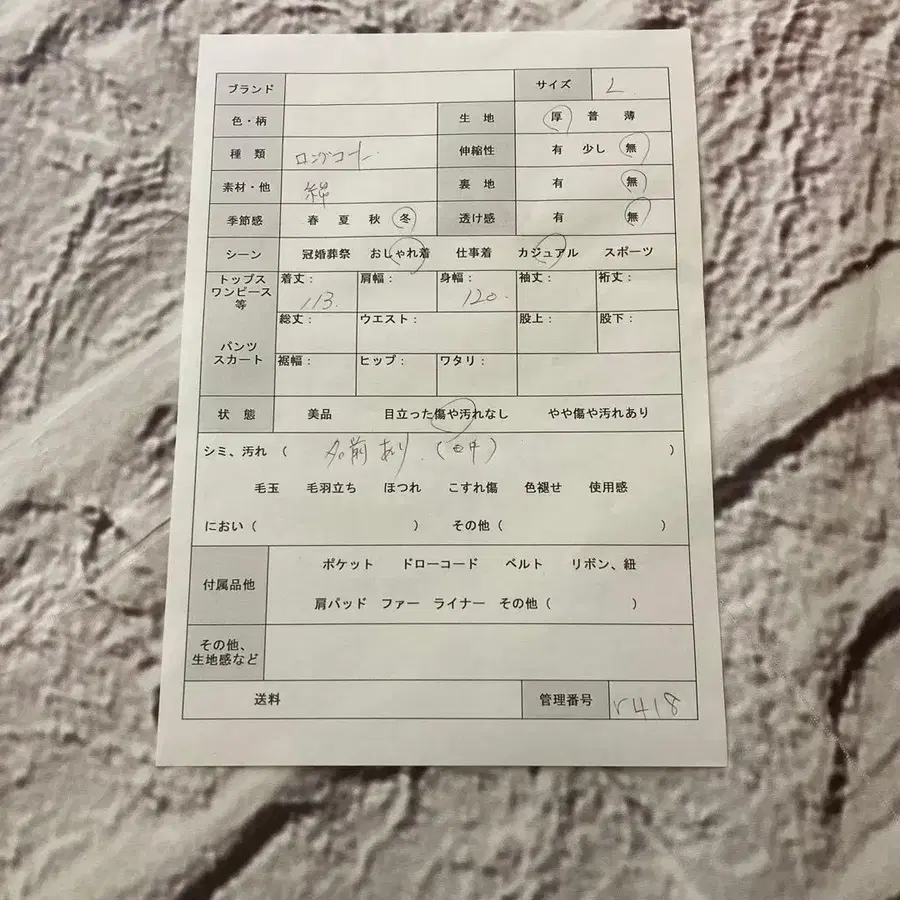 ブランド サイズ L
色・柄 生 地 厚 普 薄
種 類 ロングコート 伸縮性 有 少し 無
素材・他 裏 地 有 無
季節感 春 夏 秋 冬 透け感 有 無
シーン 冠婚葬祭 おしゃれ着 仕事着 カジュアル スポーツ
トップス
ワンピース
等
着丈： 肩幅： 身幅： 袖丈： 裄丈：
113. 120.
総丈： ウエスト： 股上： 股下：
パンツ
スカート
裾幅： ヒップ： ワタリ：
状 態 美品 目立った傷や汚れなし やや傷や汚れあり
シミ、汚れ （ 名前あり. ( ）
毛玉 毛羽立ち ほつれ こすれ傷 色褪せ 使用感
におい（ ） その他（ ）
付属品他
ポケット ドローコード ベルト リボン、紐
肩パッド ファー ライナー その他（ ）
その他、
生地感など
送料 管理番号 r418